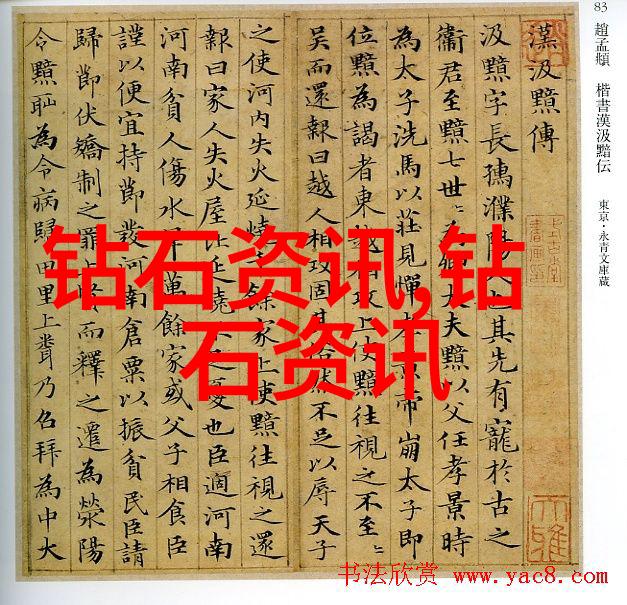 83 趙孟頫 楷書漢汲黯伝 東京・永青文庫蔵
漢汲黯傳
汲黯字長孺濮陽人也其先有寵於古之
衛君至黯七世〻卿大夫黯以父任孝景時
為太子洗馬以莊見憚孝帝崩太子即
位黯為謁者東越相攻上使黯往視之不至〻
吳而還報曰越人相攻固其俗然不足以辱天子
之使河内失火延燒餘家上使黯往視之還
報曰家人失火屋比延燒不足憂也臣適河南
河南貧人傷水旱萬餘家或父子相食臣
謹以便宜持節發河南倉粟以振貧民臣請
歸節伏矯制之罪上賢而釋之遷為滎陽
令黯恥為令病歸田里上聞乃召拜為中大
钻石资讯,钻
石资讯
书法欣赏 www.yac8.com